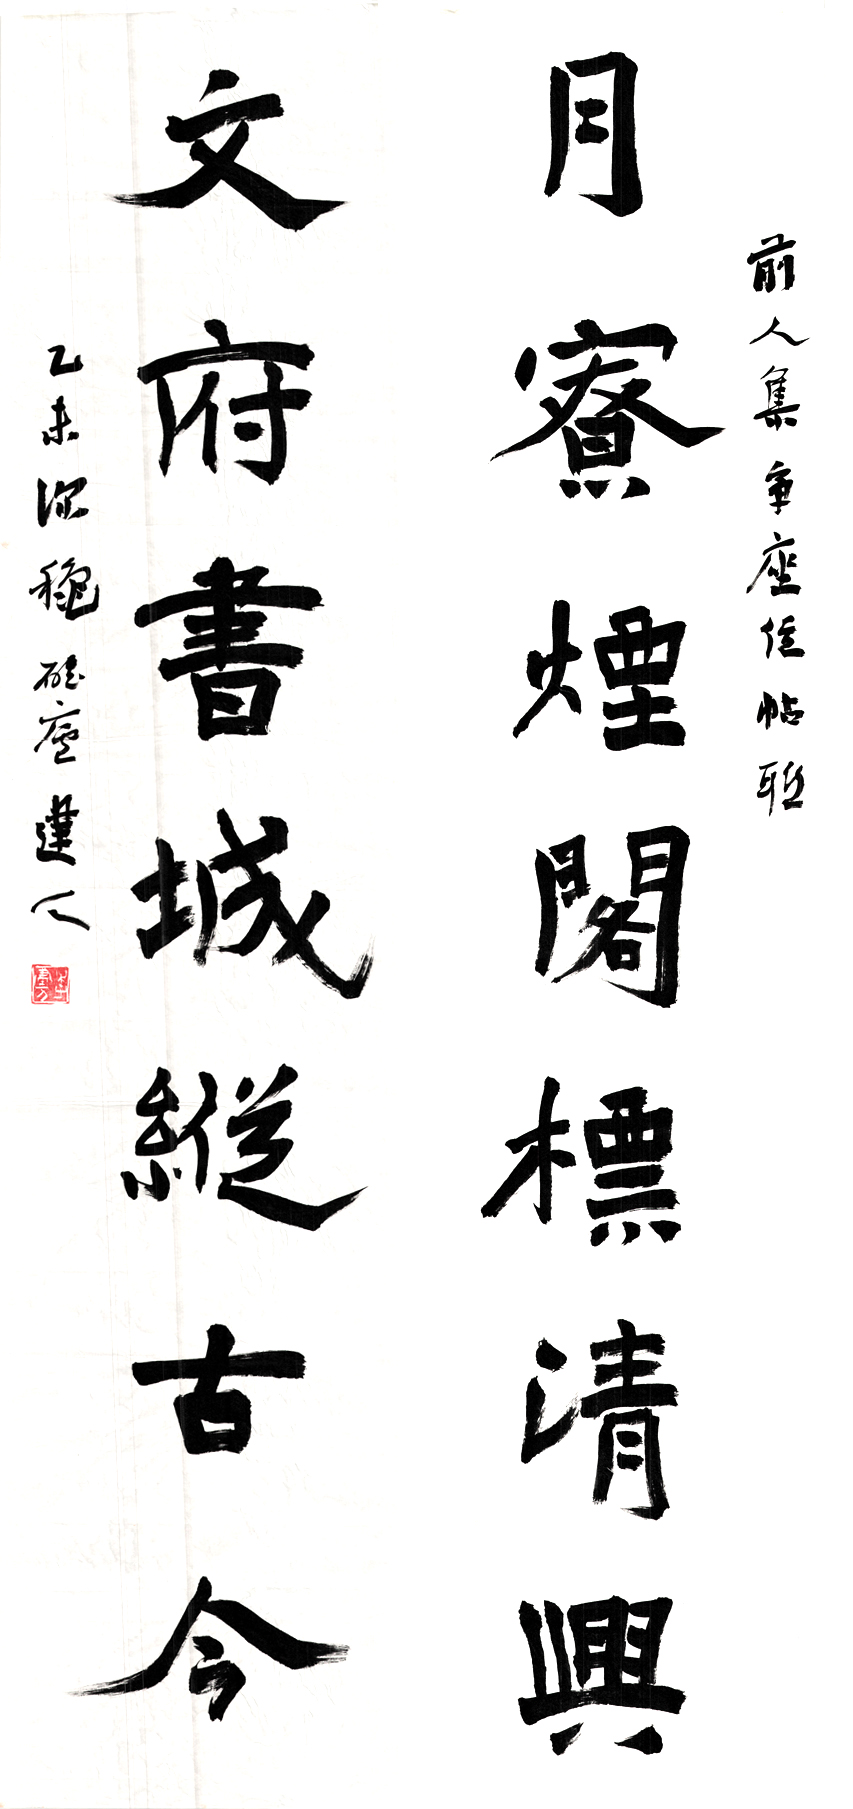 前人集争座位帖联
月寮煙閣標清興
文府書城縱古今
乙未深穐廬達人